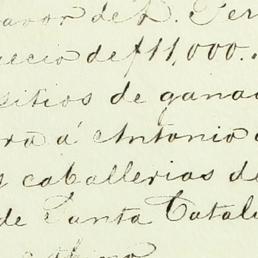 favor de D. Fer
recio de $11,000.
sitios de ganad
ra á Antonio
caballerias de
de Santa Catal